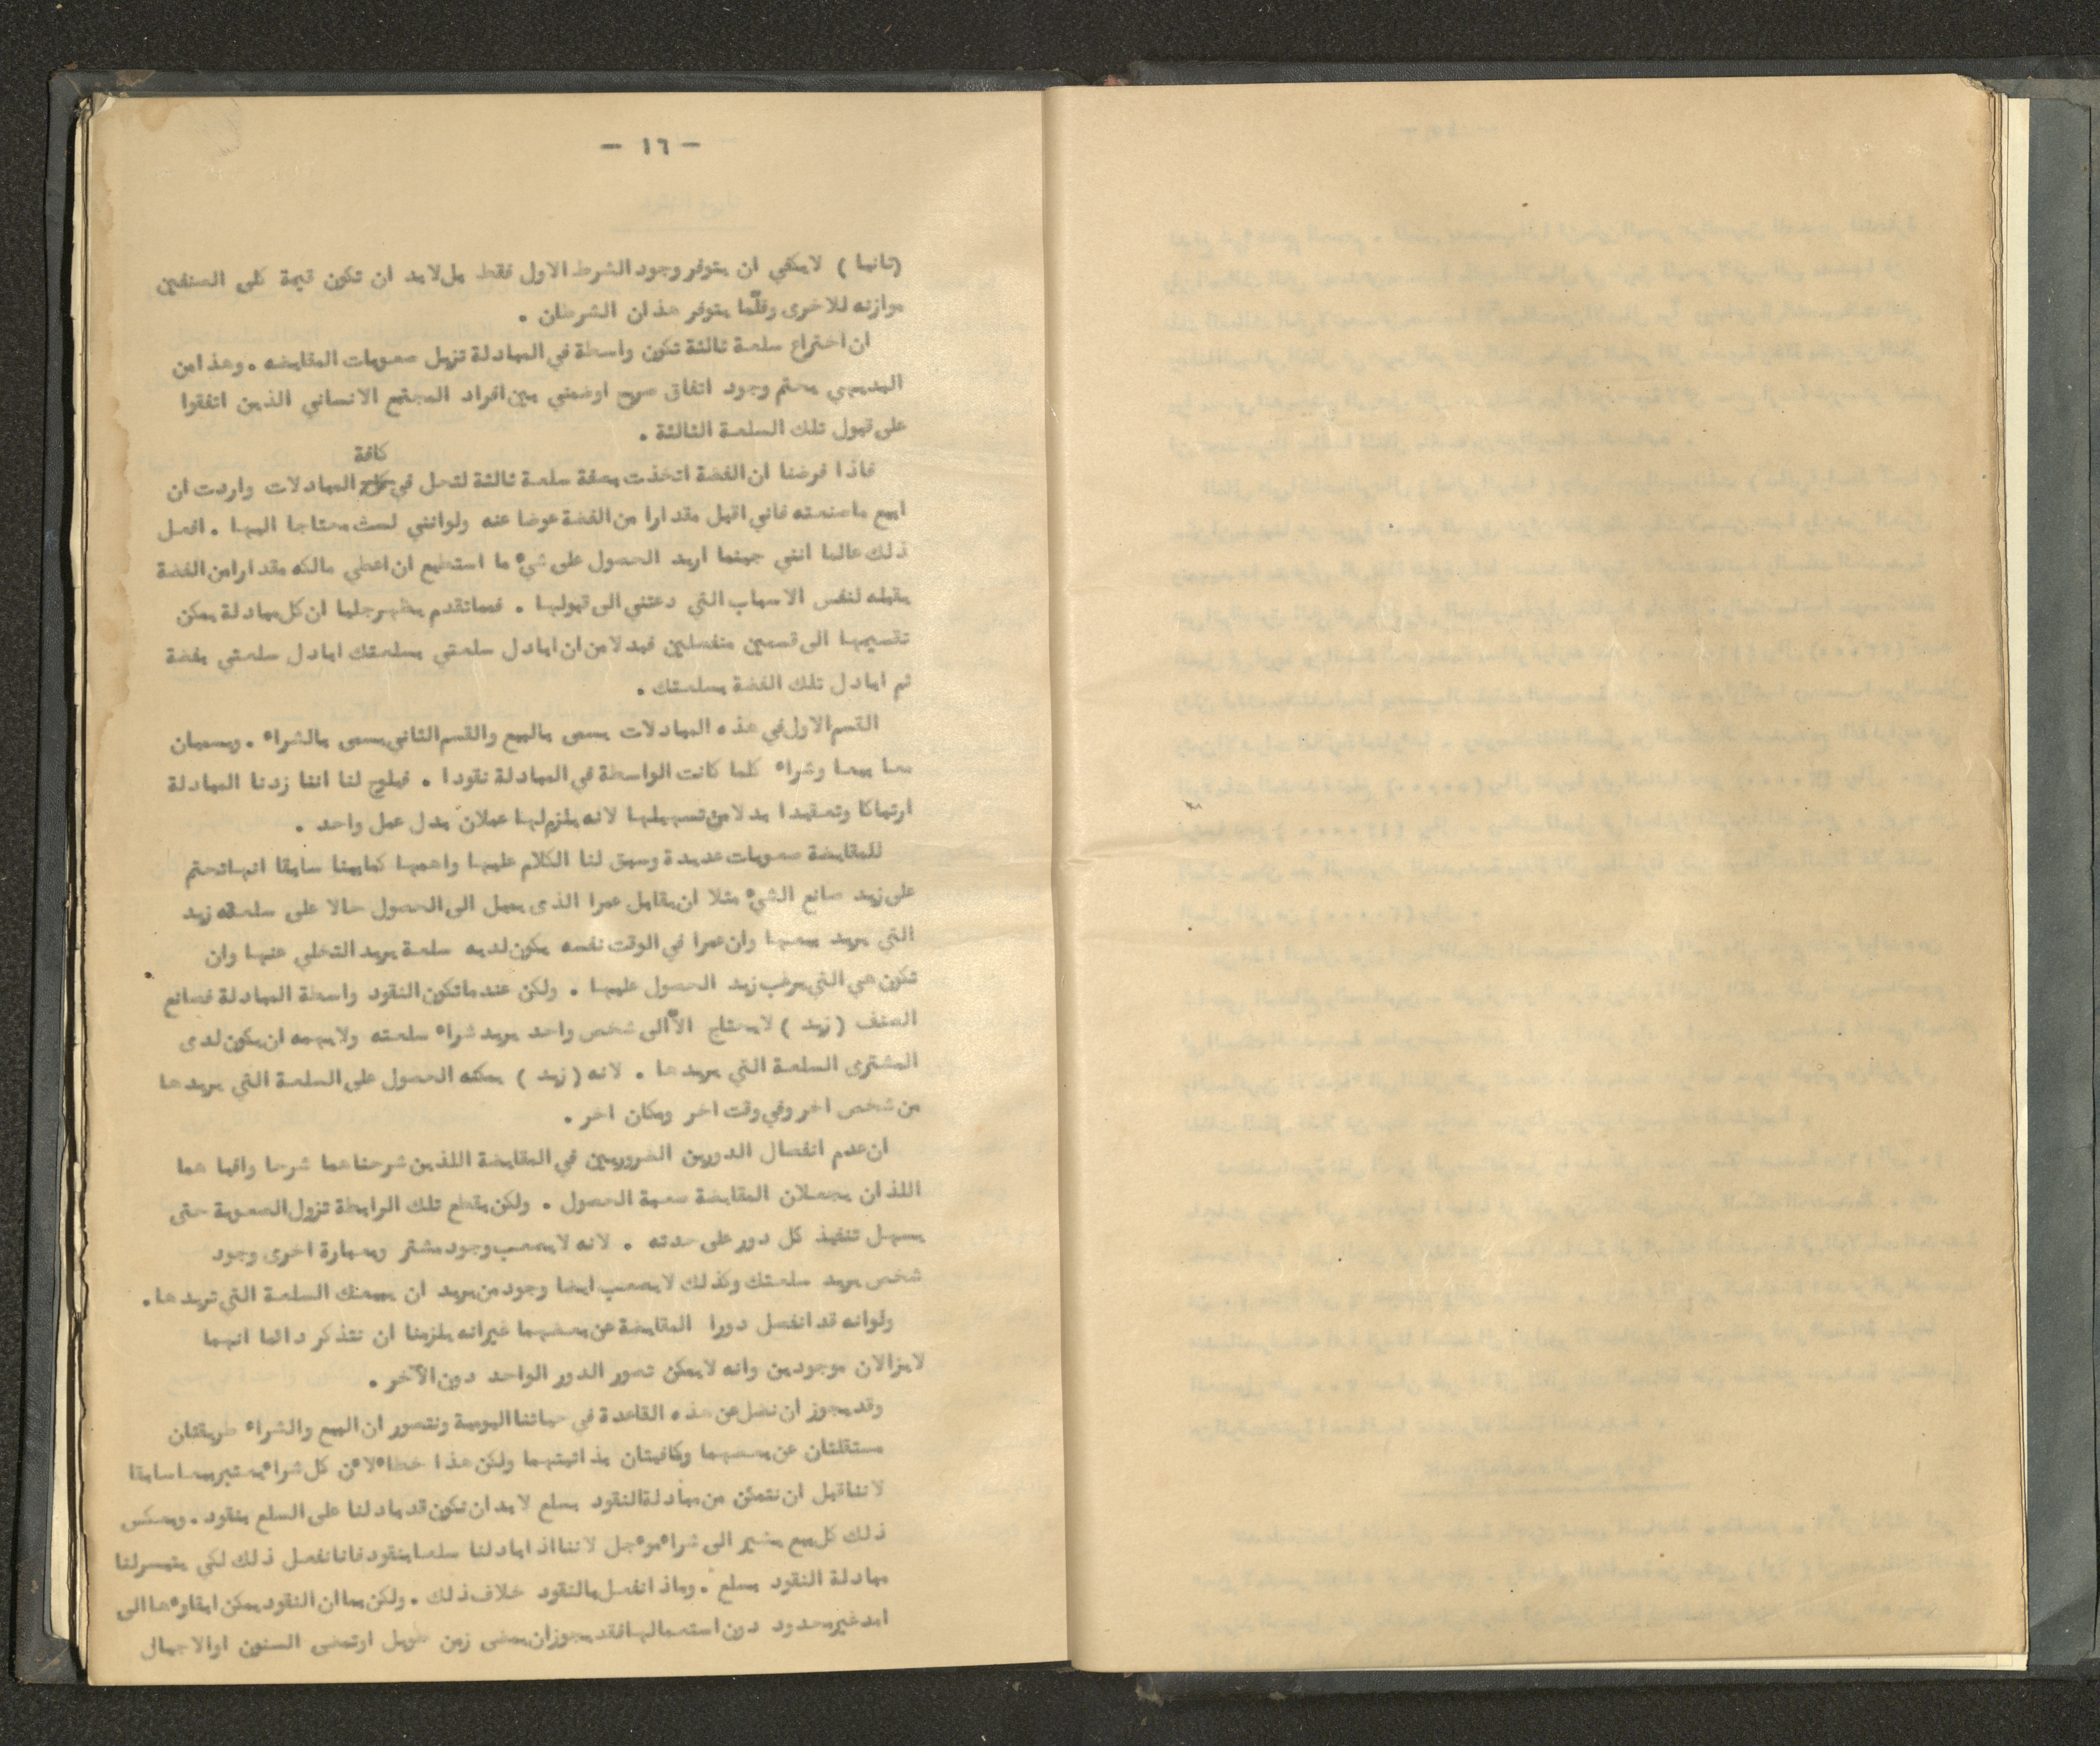 - ١٦ -
(ثانيا) لايكفي ان يتوفر وجود الشرط الاول فقط بل لابد ان تكون قيمة كلى الصنفين
موازنه للاخرى وقلّما يتوفر هذان الشرطان .
ان اختراع سلعة ثالثة تكون واسطة في المبادلة تزيل صعوبات المقايضه . وهذا من
البديهي يحتم وجود اتفاق صريح اوضمني بين افراد المجتمع الانساني الذين اتفقوا
على قبول تلك السلعة الثالثة .
كافة
فاذا فرضنا ان الفضة اتخذت بصفة سلعة ثالثة لتحل في المبادلات واردت ان
ابيع ماصنعته فاني اقبل مقدارا من الفضة عوضا عنه ولوانني لست محتاجا اليها . افعل
ذلك عالما انني حينما اريد الحصول على شيء ما استطيع ان اعطي مالكه مقدارا من الفضة
يقبله لنفس الاسباب التي دعتني الى قبولها . فمماتقدم يظهر جليا ان كل مبادلة يمكن
تقسيمها الى قسمين منفصلين فبدلا من ان ابادل سلعتي بسلعتك ابادل سلعتي بفضة
ثم ابادل تلك الفضة بسلعتك .
القسم الاول في هذه المبادلات يسمى بالبيع والقسم الثاني يسمى بالشراء . ويسميان
معا بيعا وشراء كلما كانت الواسطة في المبادلة نقودا . فيلوح لنا اننا زدنا المبادلة
ارتباكا وتعقيدا بدلا من تسهيلها لانه يلزم لها عملان بدل عمل واحد .
للمقايضة صعوبات عديدة وسبق لنا الكلام عليها واهمها كمابينا سابقا انهاتحتم
على زيد صانع الشيء مثلا ان يقابل عمرا الذى يميل الى الحصول حالا على سلعة زيد
التي يريد بيعها وان عمرا في الوقت نفسه يكون لديه سلعة يريد التخلي عنها وان
تكون هي التي يرغب زيد الحصول عليها . ولكن عندماتكون النقود واسطة المبادلة فصانع
الصنف (زيد) لايحتاج الاّ الى شخص واحد يريد شراء سلعته ولايهمه ان يكون لدى
المشترى السلعة التي يريدها . لانه (زيد) يمكنه الحصول على السلعة التي يريدها
من شخص اخر وفي وقت اخر ومكان اخر .
ان عدم انفصال الدورين الضروريين في المقايضة اللذين شرحناهما شرحا وافيا هما
اللذان يجعلان المقايضة صعبة الحصول . ولكن بقطع تلك الرابطة تزول الصعوبة حتى
يسهل تنفيذ كل دور على حدته . لانه لايصعب وجود مشتر وبعبارة اخرى وجود
شخص يريد سلعتك وكذلك لايصعب ايضا وجود من يريد ان يبيعك السلعة التي تريدها .
ولوانه قد انفصل دورا المقايضة عن بعضهما غيرانه يلزمنا ان نتذكر دائما انهما
لايزالان موجودين وانه لايمكن تصور الدور الواحد دون الآخر .
وقد يجوز ان نضل عن هذه القاعدة في حياتنا اليومية ونتصور ان البيع والشراء طريقتان
مستقلتان عن بعضهما وكافيتان بذاتيتهما ولكن هذا خطاء لاءن كل شراء يعتبر بيعا سابقا
لاننا قبل ان نتمكن من مبادلة النقود بسلع لابد ان نكون قد بادلنا على السلع بنقود . وبعكس
ذلك كل بيع يشير الى شراء موءجل لاننا اذ ابادلنا سلعا بنقود فاننا نفعل ذلك لكي يتيسر لنا
مبادلة النقود بسلع . وماذا نفعل بالنقود خلاف ذلك . ولكن بما ان النقود يمكن ابقاوءها الى
ابد غير محدود دون استعمالها فقد يجوز ان يمضى زمن طويل اوتمضى السنون اوالاجيال